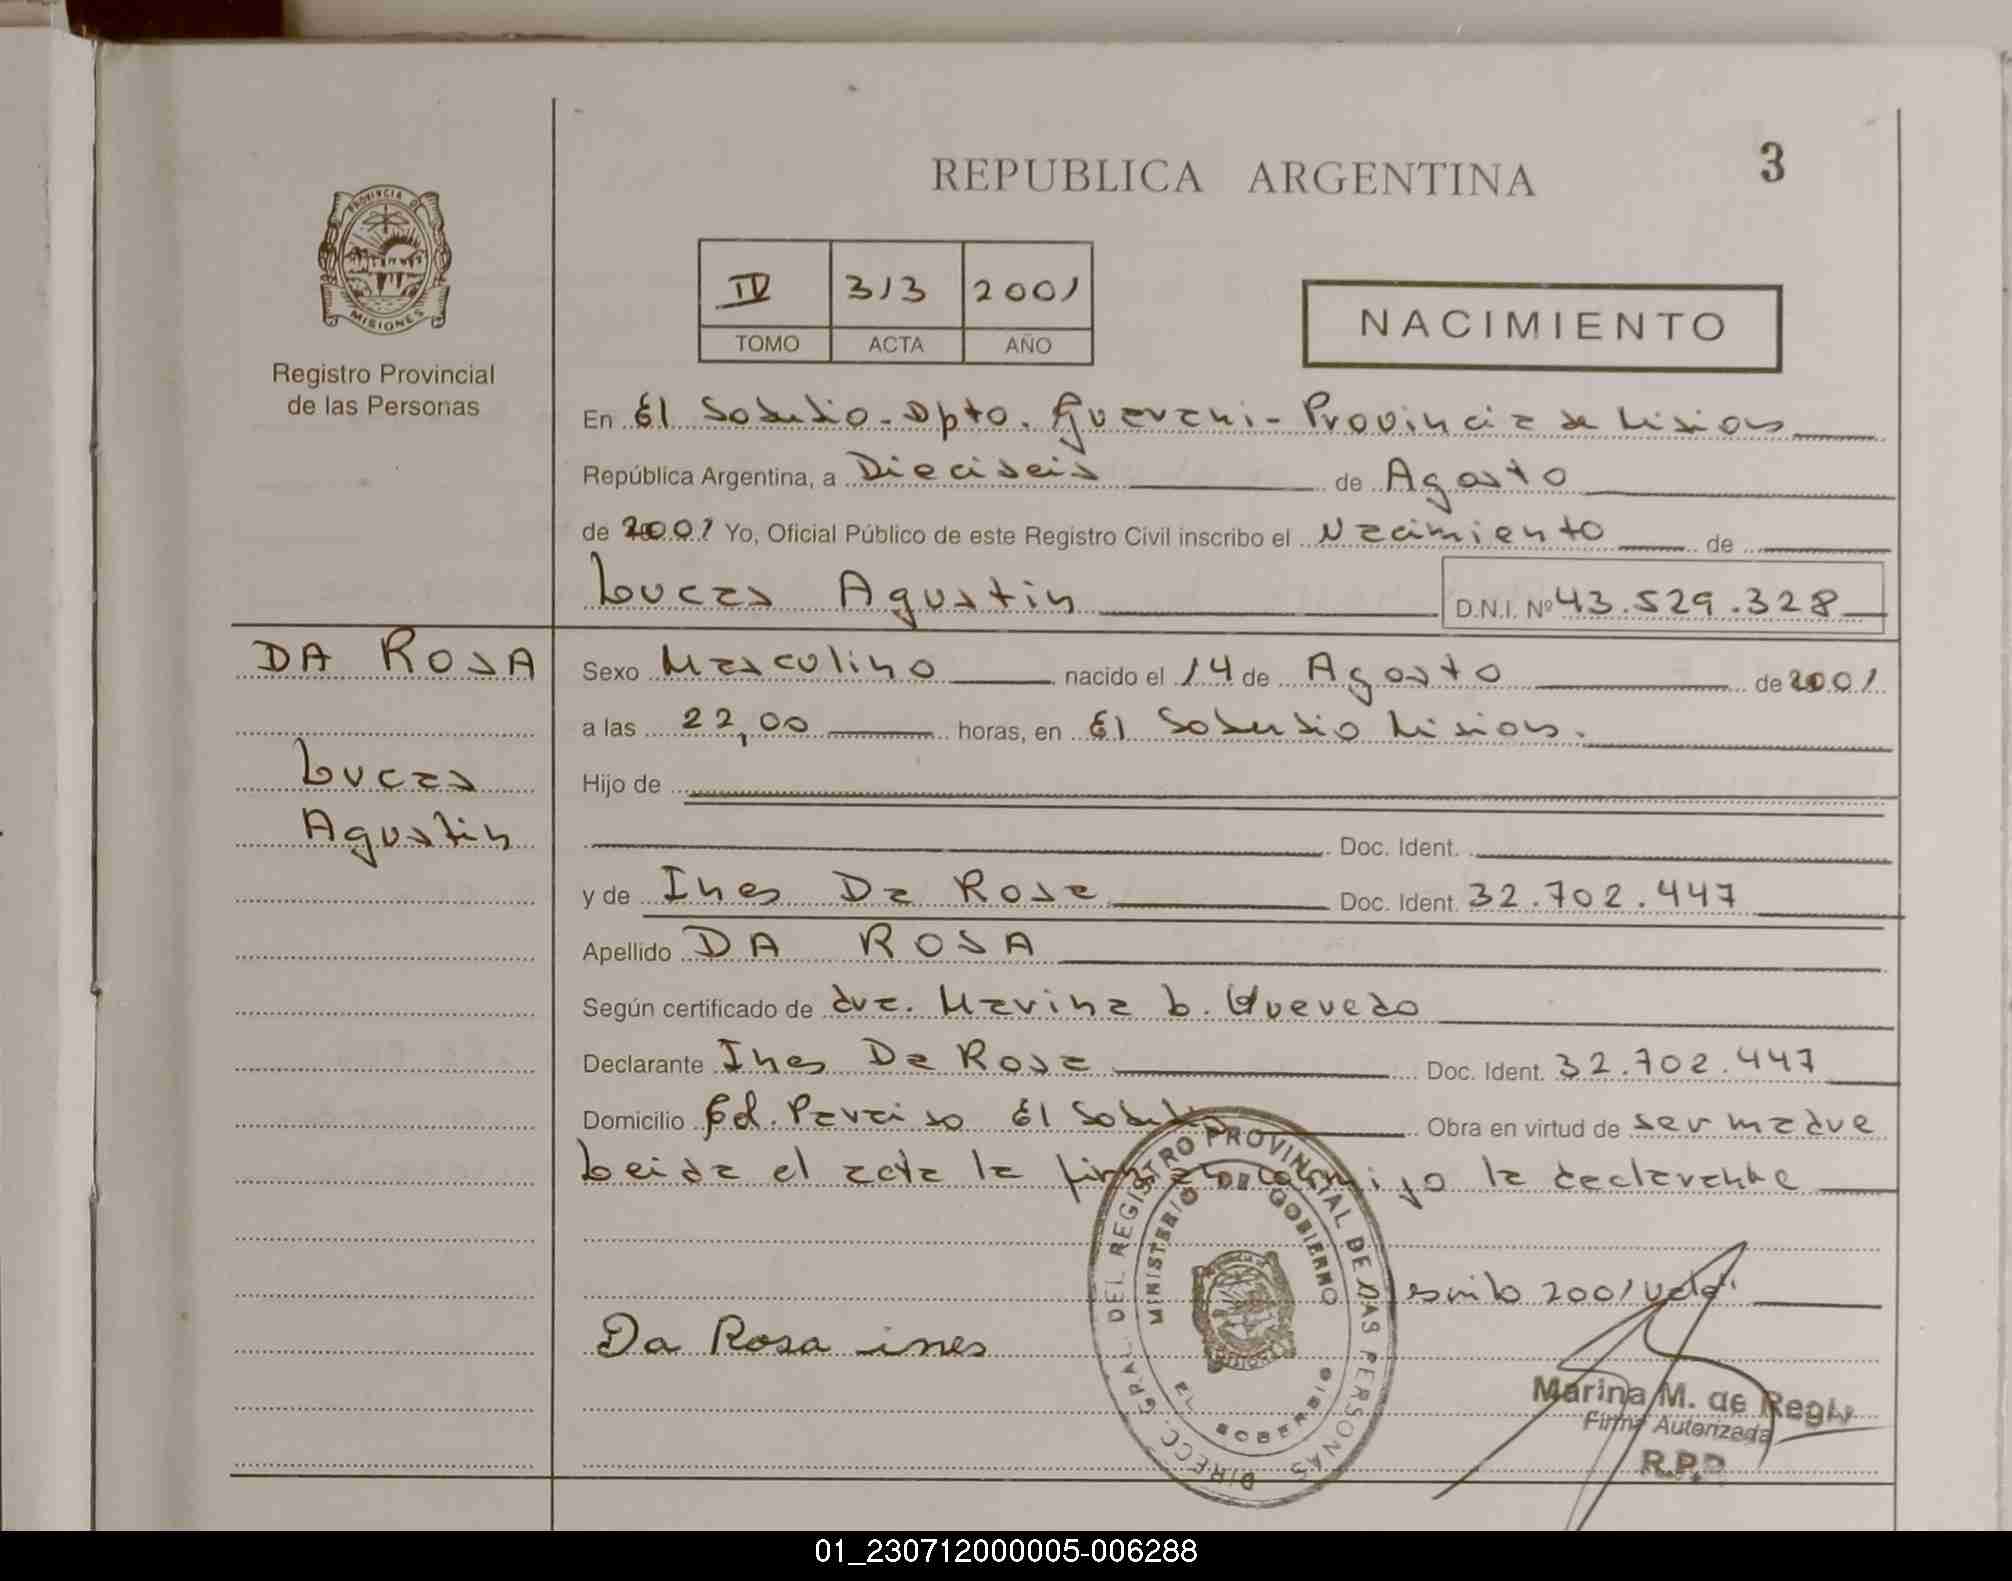 REPUBLICA ARGENTINA
3
PROVINCIA DE
MISIONES
Registro Provincial
de las Personas
IV 313 2001
TOMO ACTA AÑO
NACIMIENTO
En El Soberbio - Dpto. Guarani - Provincia de Misiones
República Argentina, a Dieciseis de Agosto
de 2001 Yo, Oficial Público de este Registro Civil inscribo el Nacimiento de
Lucas Agustin D.N.I. Nº 43.529.328
DA ROSA
Lucas
Agustin
Sexo Masculino nacido el 14 de Agosto de 2001
a las 22,00 horas, en El Soberbio Misiones.
Hijo de
Doc. Ident.
y de Ines Da Rosa Doc. Ident. 32.702.447
Apellido DA ROSA
Según certificado de dra. Marina b. Quevedo
Declarante Ines Da Rosa Doc. Ident. 32.702.447
Domicilio Cd. Paraiso El Soberbio Obra en virtud de ser madre
Leida el acta la firma conmigo la declarante
2001 vale
Da Rosa ines
DIRECC. GRAL. DEL REGISTRO PROVINCIAL DE LAS PERSONAS
MINISTERIO DE GOBIERNO
EL SOBERBIO
Marina M. de Regly
Firma Autorizada
R.P.P.
01_230712000005-006288